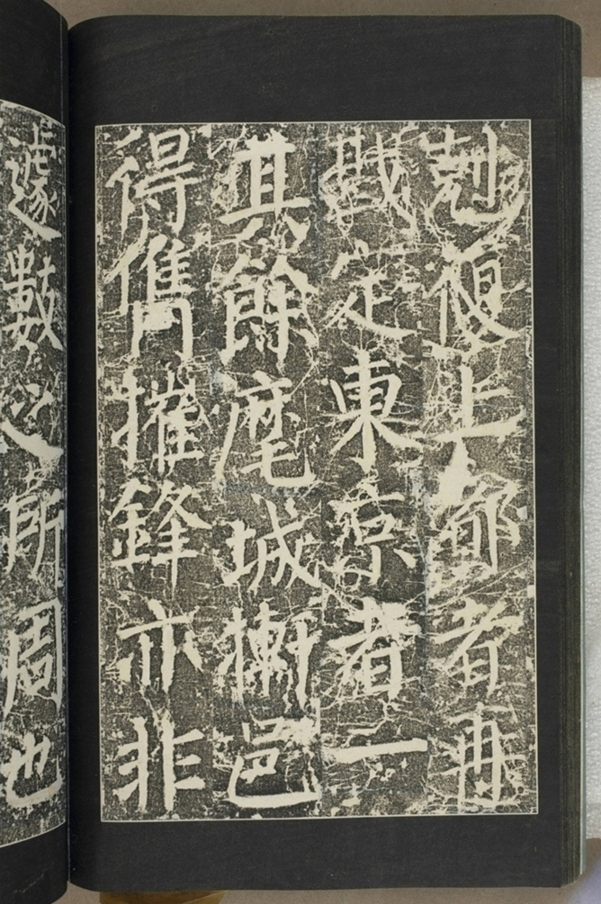 剋復上都者再
戡定東京者一
其餘麾城摲邑
得儁摧鋒亦非
遽數之所周也